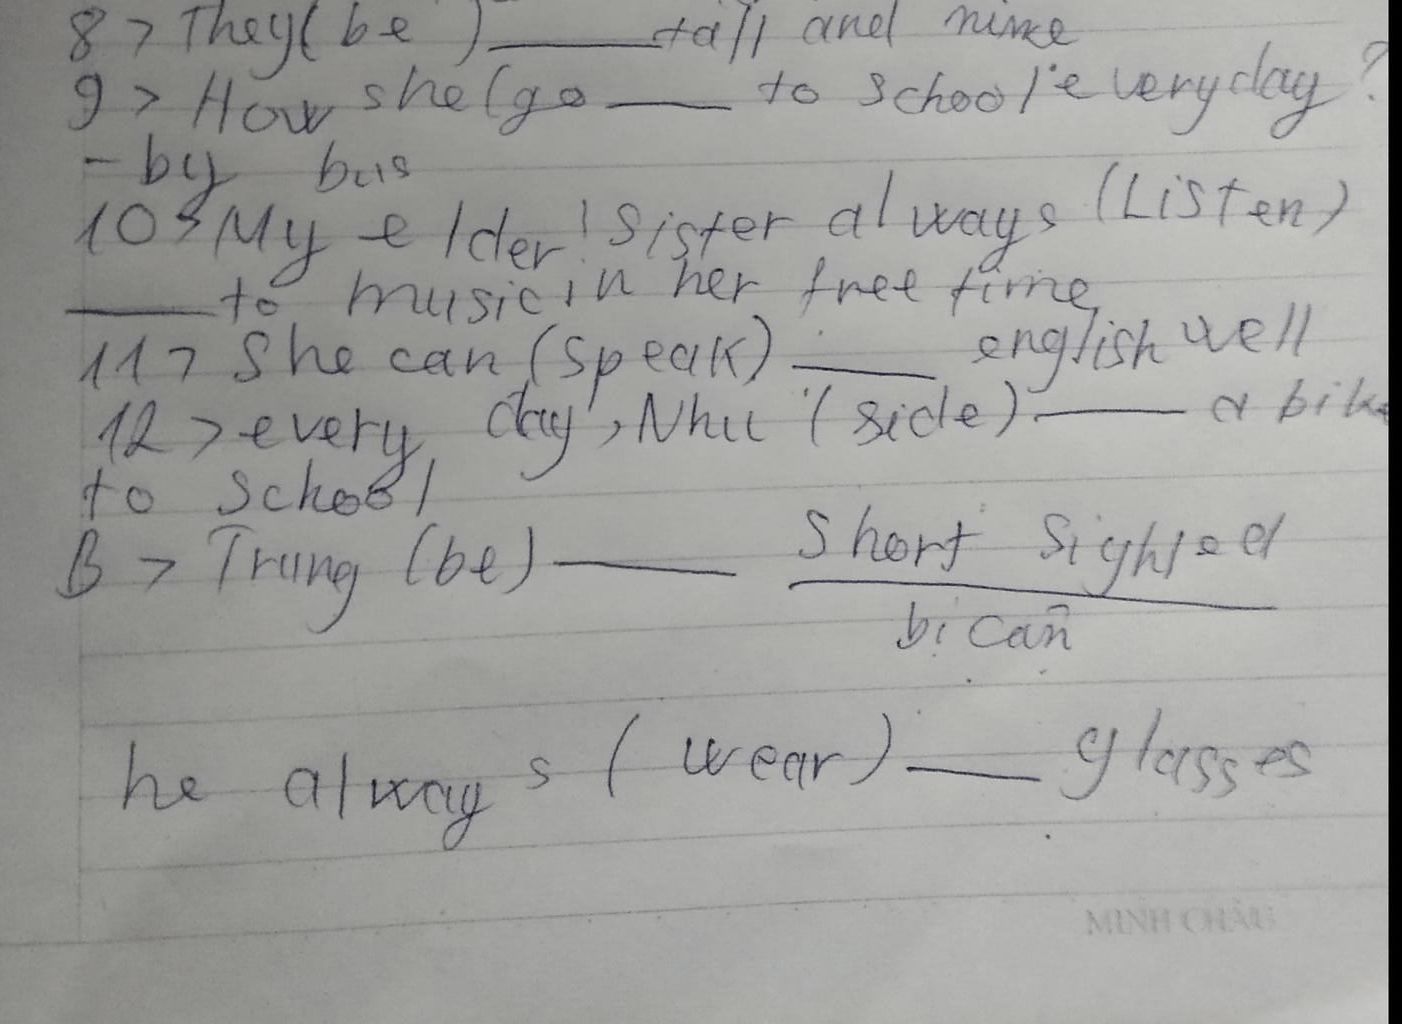 8 > They( be ) ____ tall and nine
9 > How she (go ____ to school everyday ?
- by bus
10 > My elder sister always (Listen)
____ to music in her free time
11 > She can (speak) ____ english well
12 > every day, Nhu (side) ____ a bike
to school
B > Trung (be) ____ short sighted
bị cận
he always (wear) ____ glasses
MINH CHÂU